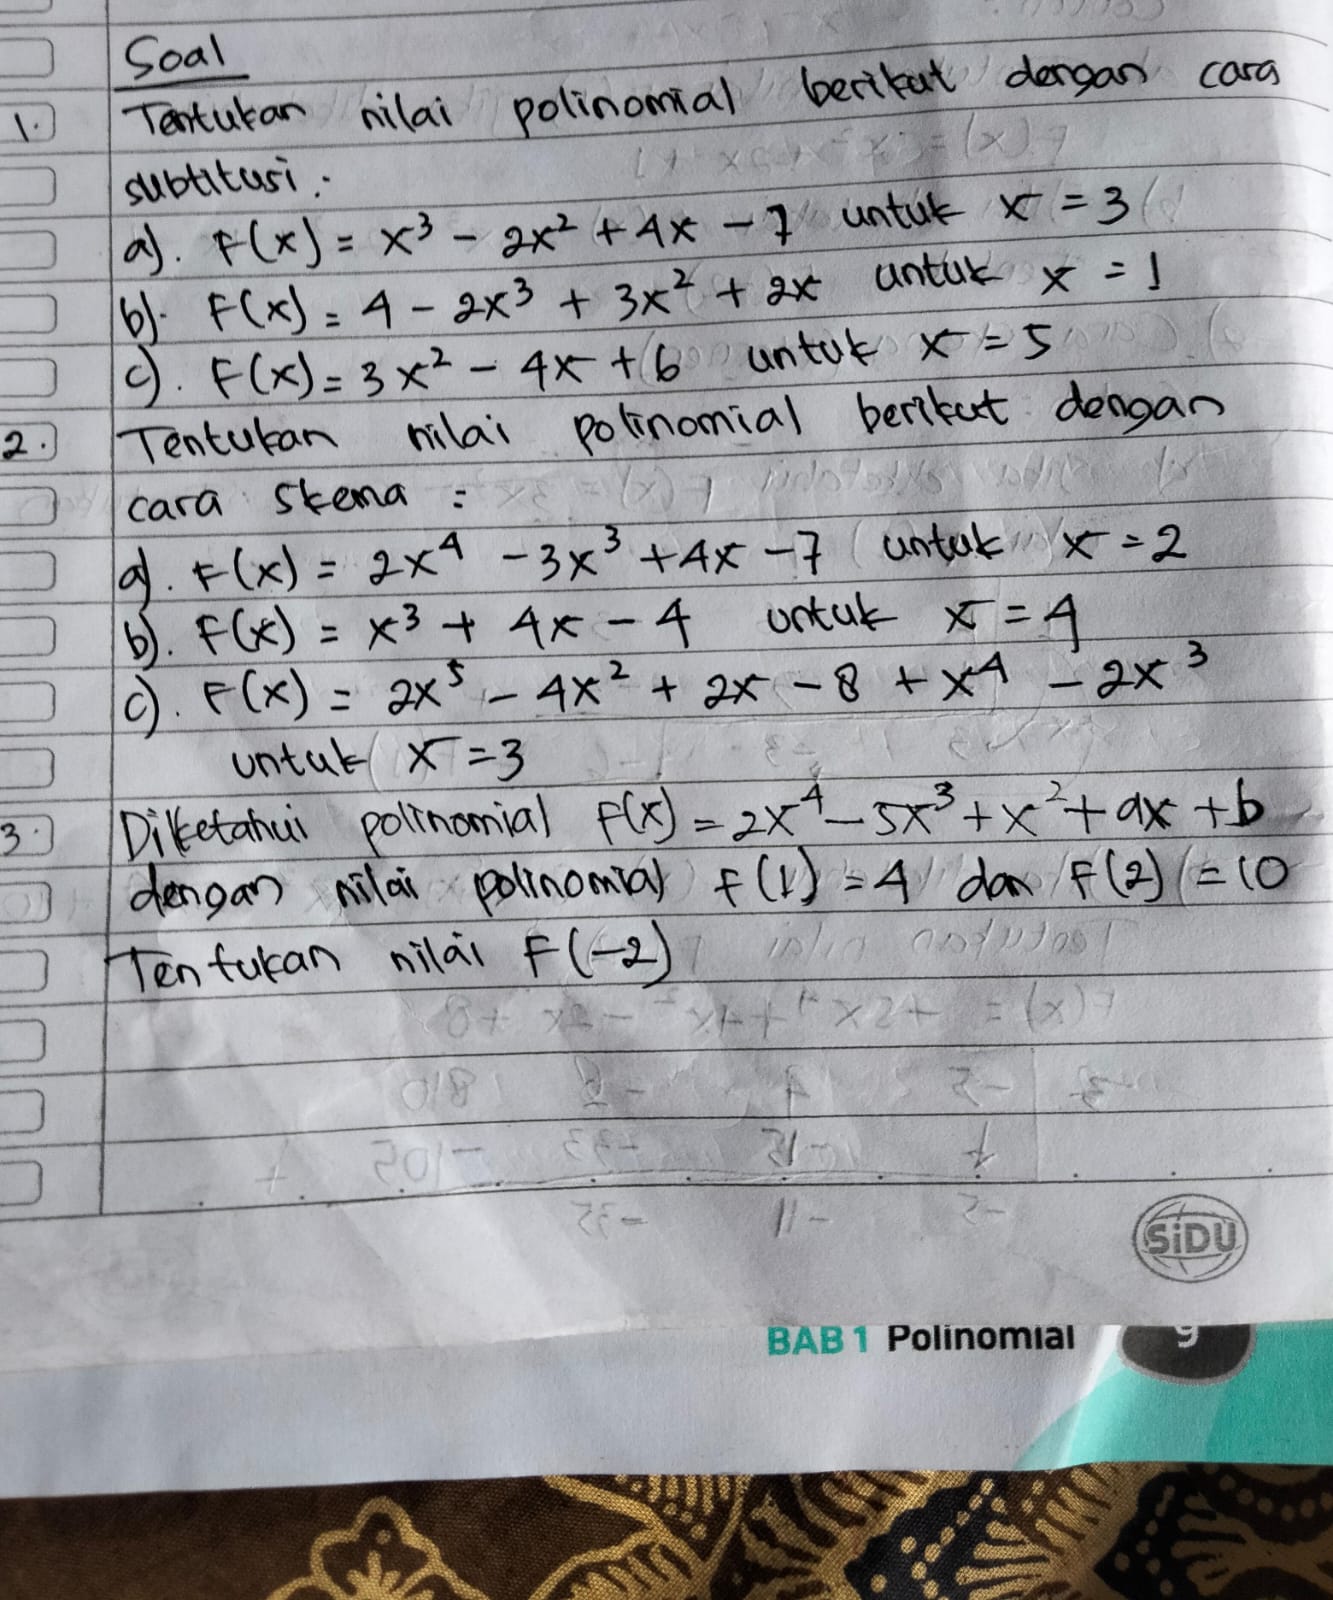 Soal
1. Tentukan nilai polinomial berikut dengan cara
subtitusi :
a). F(x) = x³ - 2x² + 4x - 7 untuk x = 3
b). F(x) = 4 - 2x³ + 3x² + 2x untuk x = 1
c). F(x) = 3x² - 4x + 6 untuk x = 5
2. Tentukan nilai polinomial berikut dengan
cara skema :
a). F(x) = 2x⁴ - 3x³ + 4x - 7 untuk x = 2
b). F(x) = x³ + 4x - 4 untuk x = 4
c). F(x) = 2x⁵ - 4x² + 2x - 8 + x⁴ - 2x³
untuk x = 3
3. Diketahui polinomial f(x) = 2x⁴ - 5x³ + x² + ax + b
dengan nilai polinomial f(1) = 4 dan f(2) = 10
Tentukan nilai F(-2)
SiDU
BAB 1 Polinomial 9